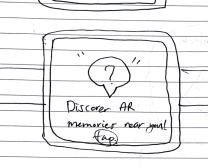 ?
Discover AR
memories near you!
tap